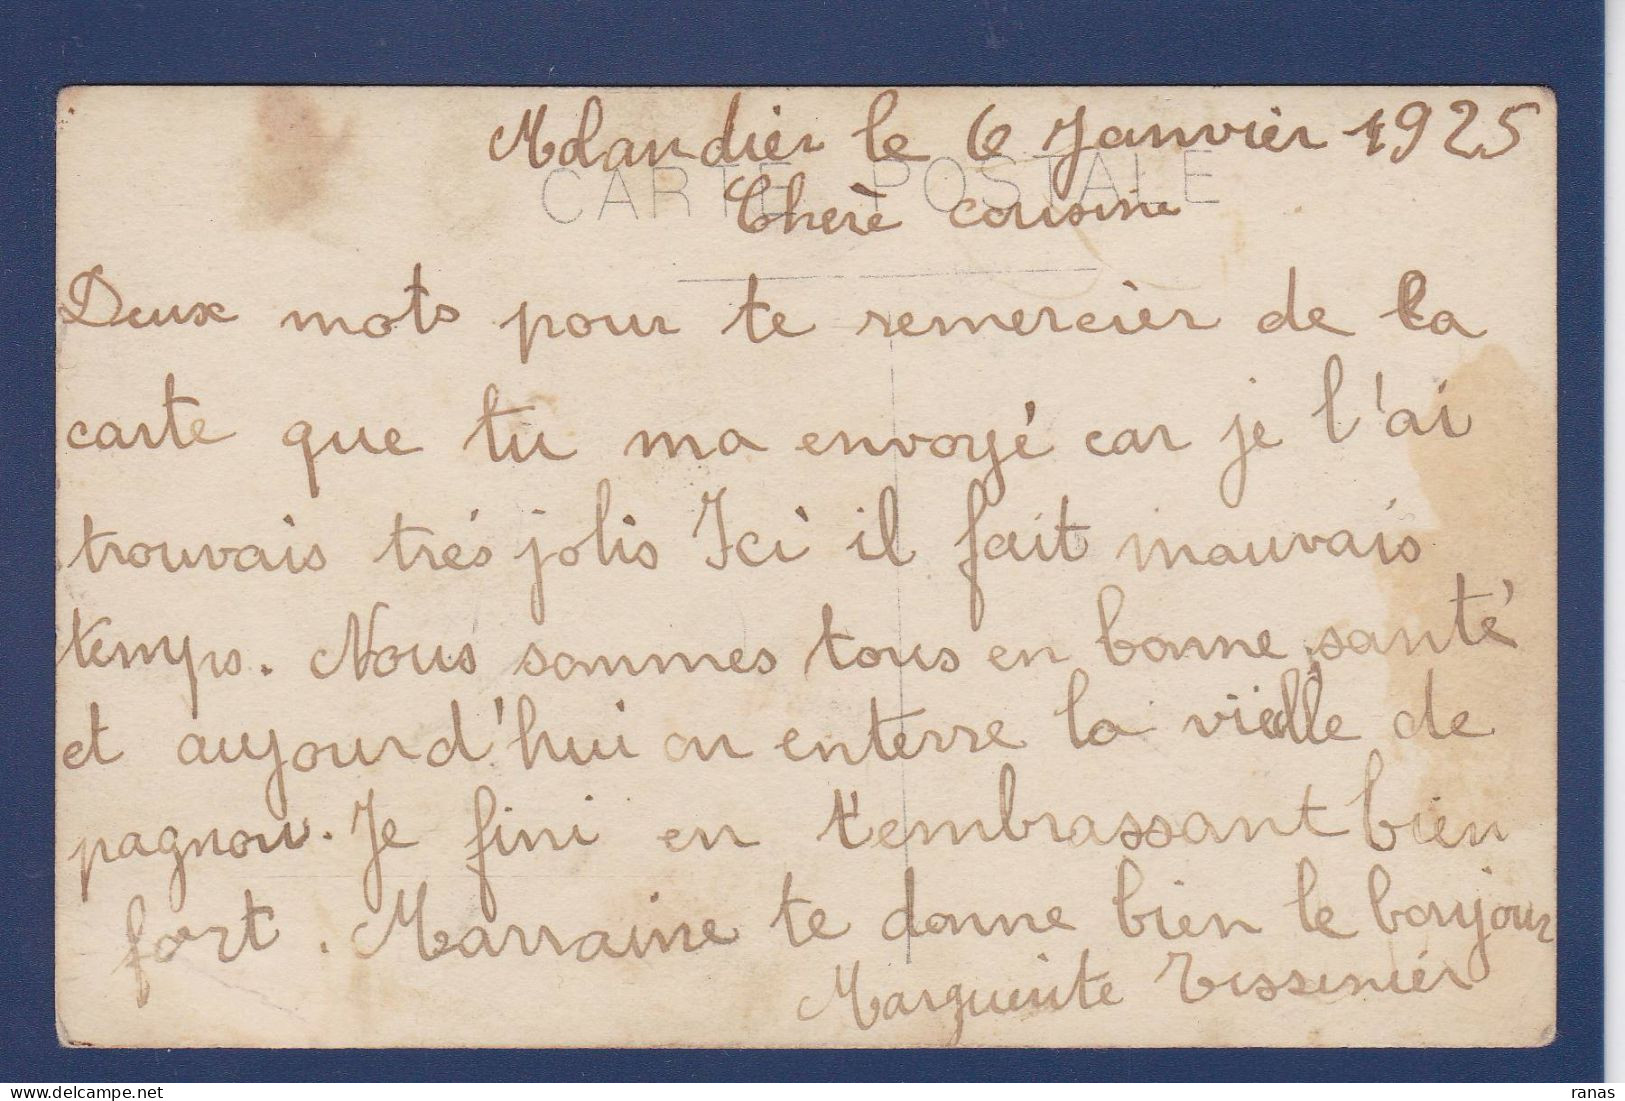 Molandier le 6 Janvier 1925
CARTE POSTALE
Cherè cousine
Deux mots pour te remercier de la
carte que tu ma envoyé car je l'ai
trouvais trés jolis Ici il fait mauvais
temps. Nous sommes tous en bonne santé
et aujourd'hui on enterre la vielle de
pagnou. Je fini en t'embrassant bien
fort. Marraine te donne bien le bonjour
Marguerite Tissinier
ranas